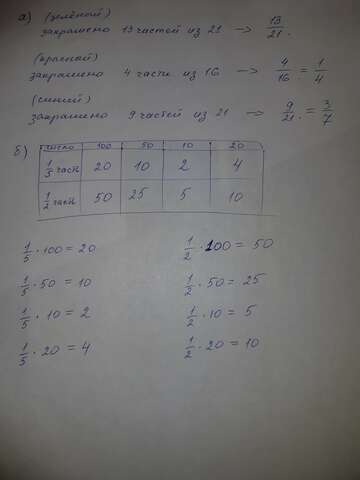 а) (зелёной)
закрашено 13 частей из 21 → 13/21.
(красной)
закрашено 4 части из 16 → 4/16 = 1/4
(синий)
закрашено 9 частей из 21 → 9/21. = 3/7
б)
число 100 50 10 20
1/5 часть 20 10 2 4
1/2 часть 50 25 5 10
1/5 · 100 = 20 1/2 · 100 = 50
1/5 · 50 = 10 1/2 · 50 = 25
1/5 · 10 = 2 1/2 · 10 = 5
1/5 · 20 = 4 1/2 · 20 = 10